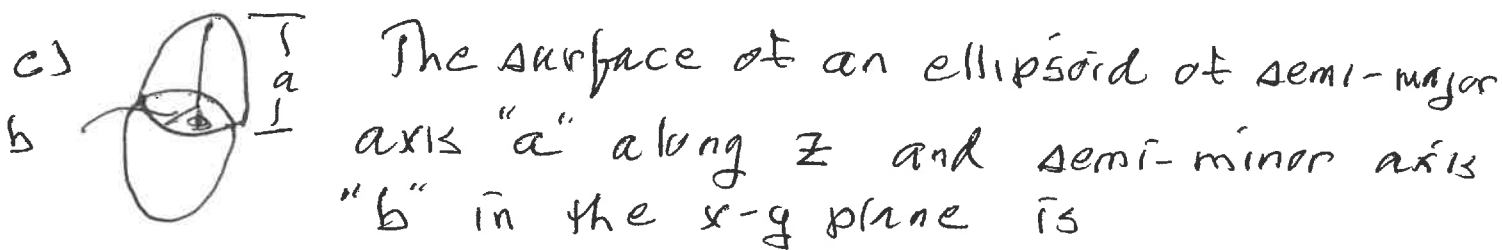 c) a The surface of an ellipsoid of semi-major
b axis "a" along z and semi-minor axis
"b" in the x-y plane is